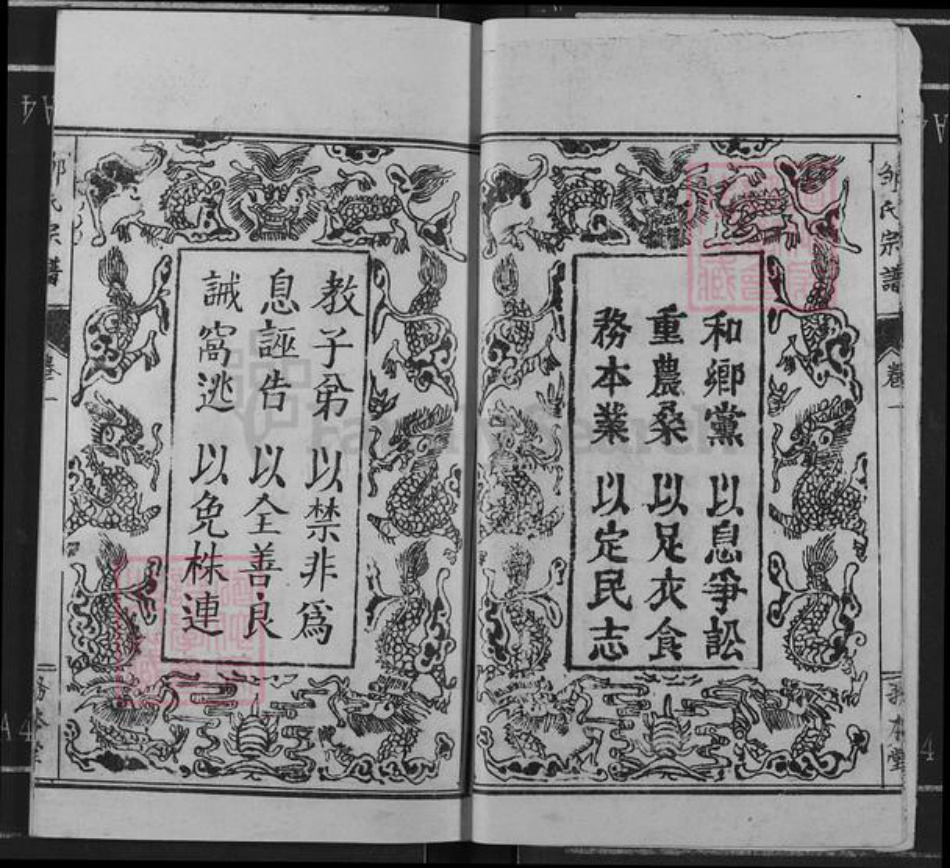 鄒氏宗譜
卷一
和鄉黨 以息爭訟
重農桑 以足衣食
務本業 以定民志
教子弟 以禁非爲
息誣告 以全善良
誡窩逃 以免株連
FamilySearch